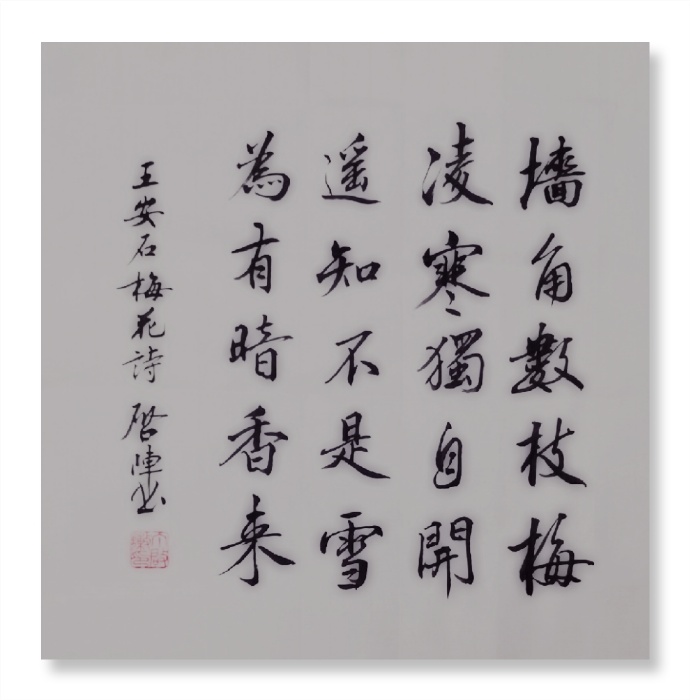 墻角數枝梅
凌寒獨自開
遥知不是雪
為有暗香来
王安石梅花詩 啓陣书